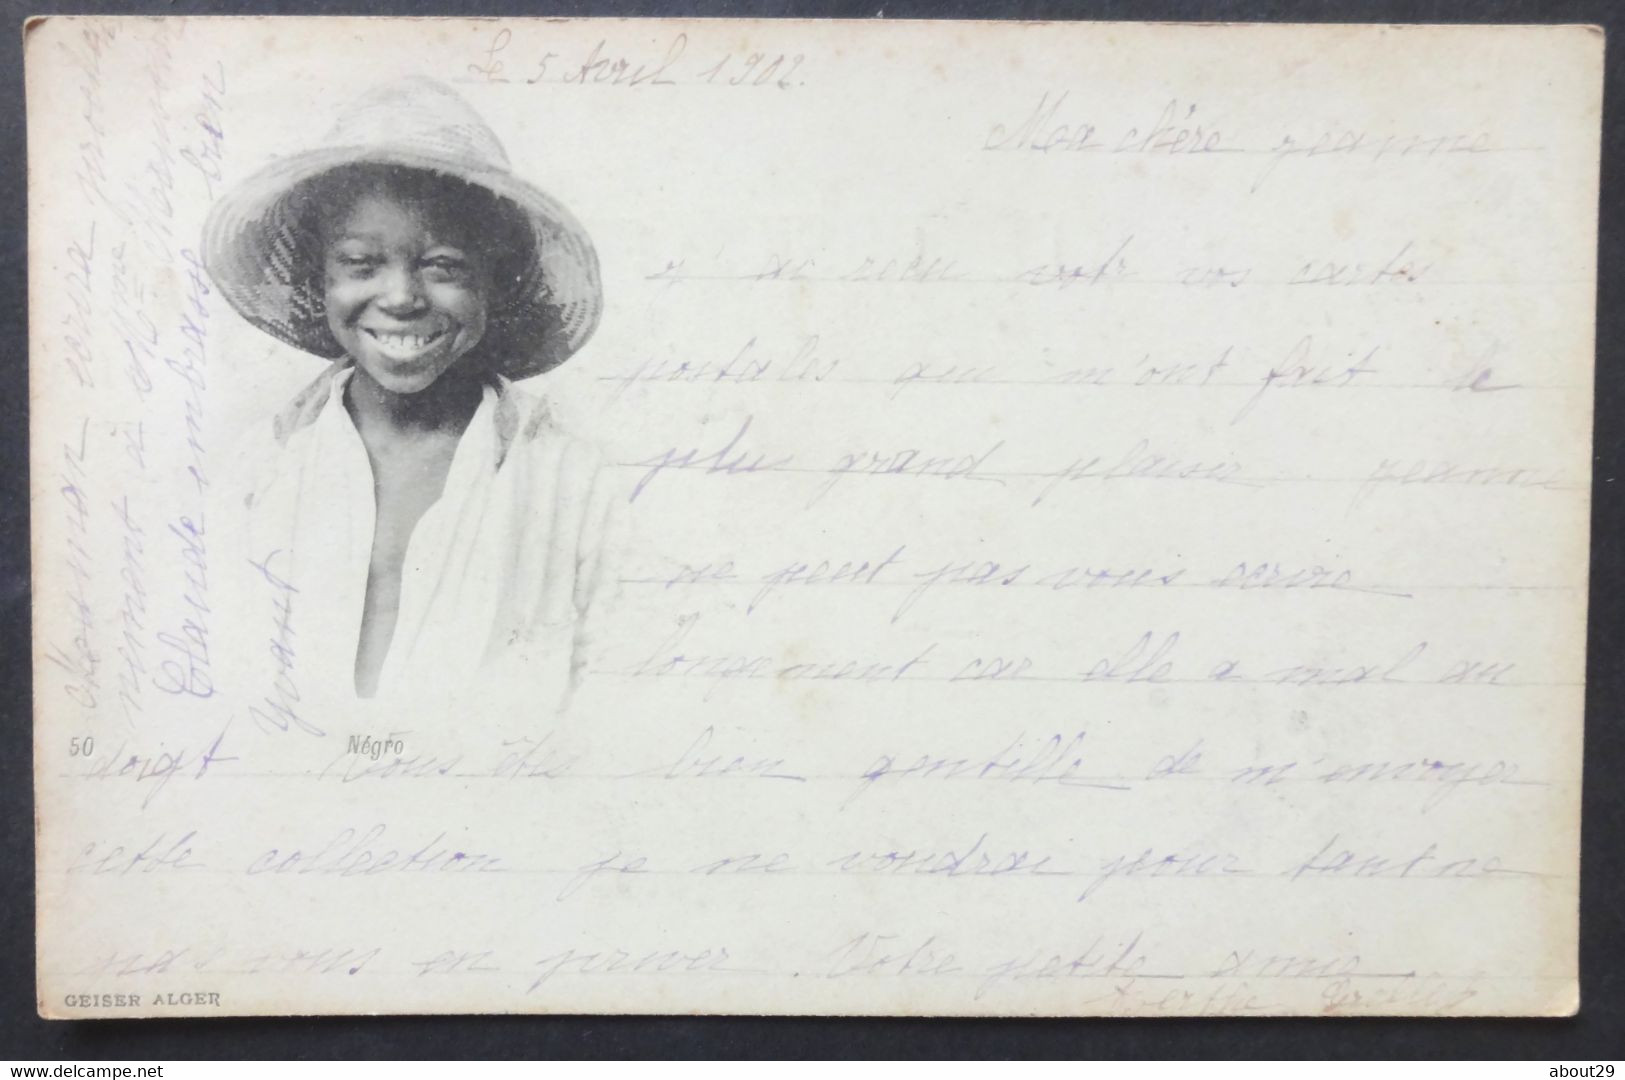 Le 5 Avril 1902.
Ma chère jeanne
j'ai recu votr vos cartes
postales qui m'ont fait le
plus grand plaisir. jeanne
ne peut pas vous ecrire
longement car elle a mal au
doigt. Vous êtes bien gentille de m'envoyer
cette collection je ne voudrai pour tant ne
pas vous en priver. Votre petite amie
Berthe
maman ecrira prochai
nement à Mme
Claude embrasse bien
Yvant
50
Négro
GEISER ALGER
about29